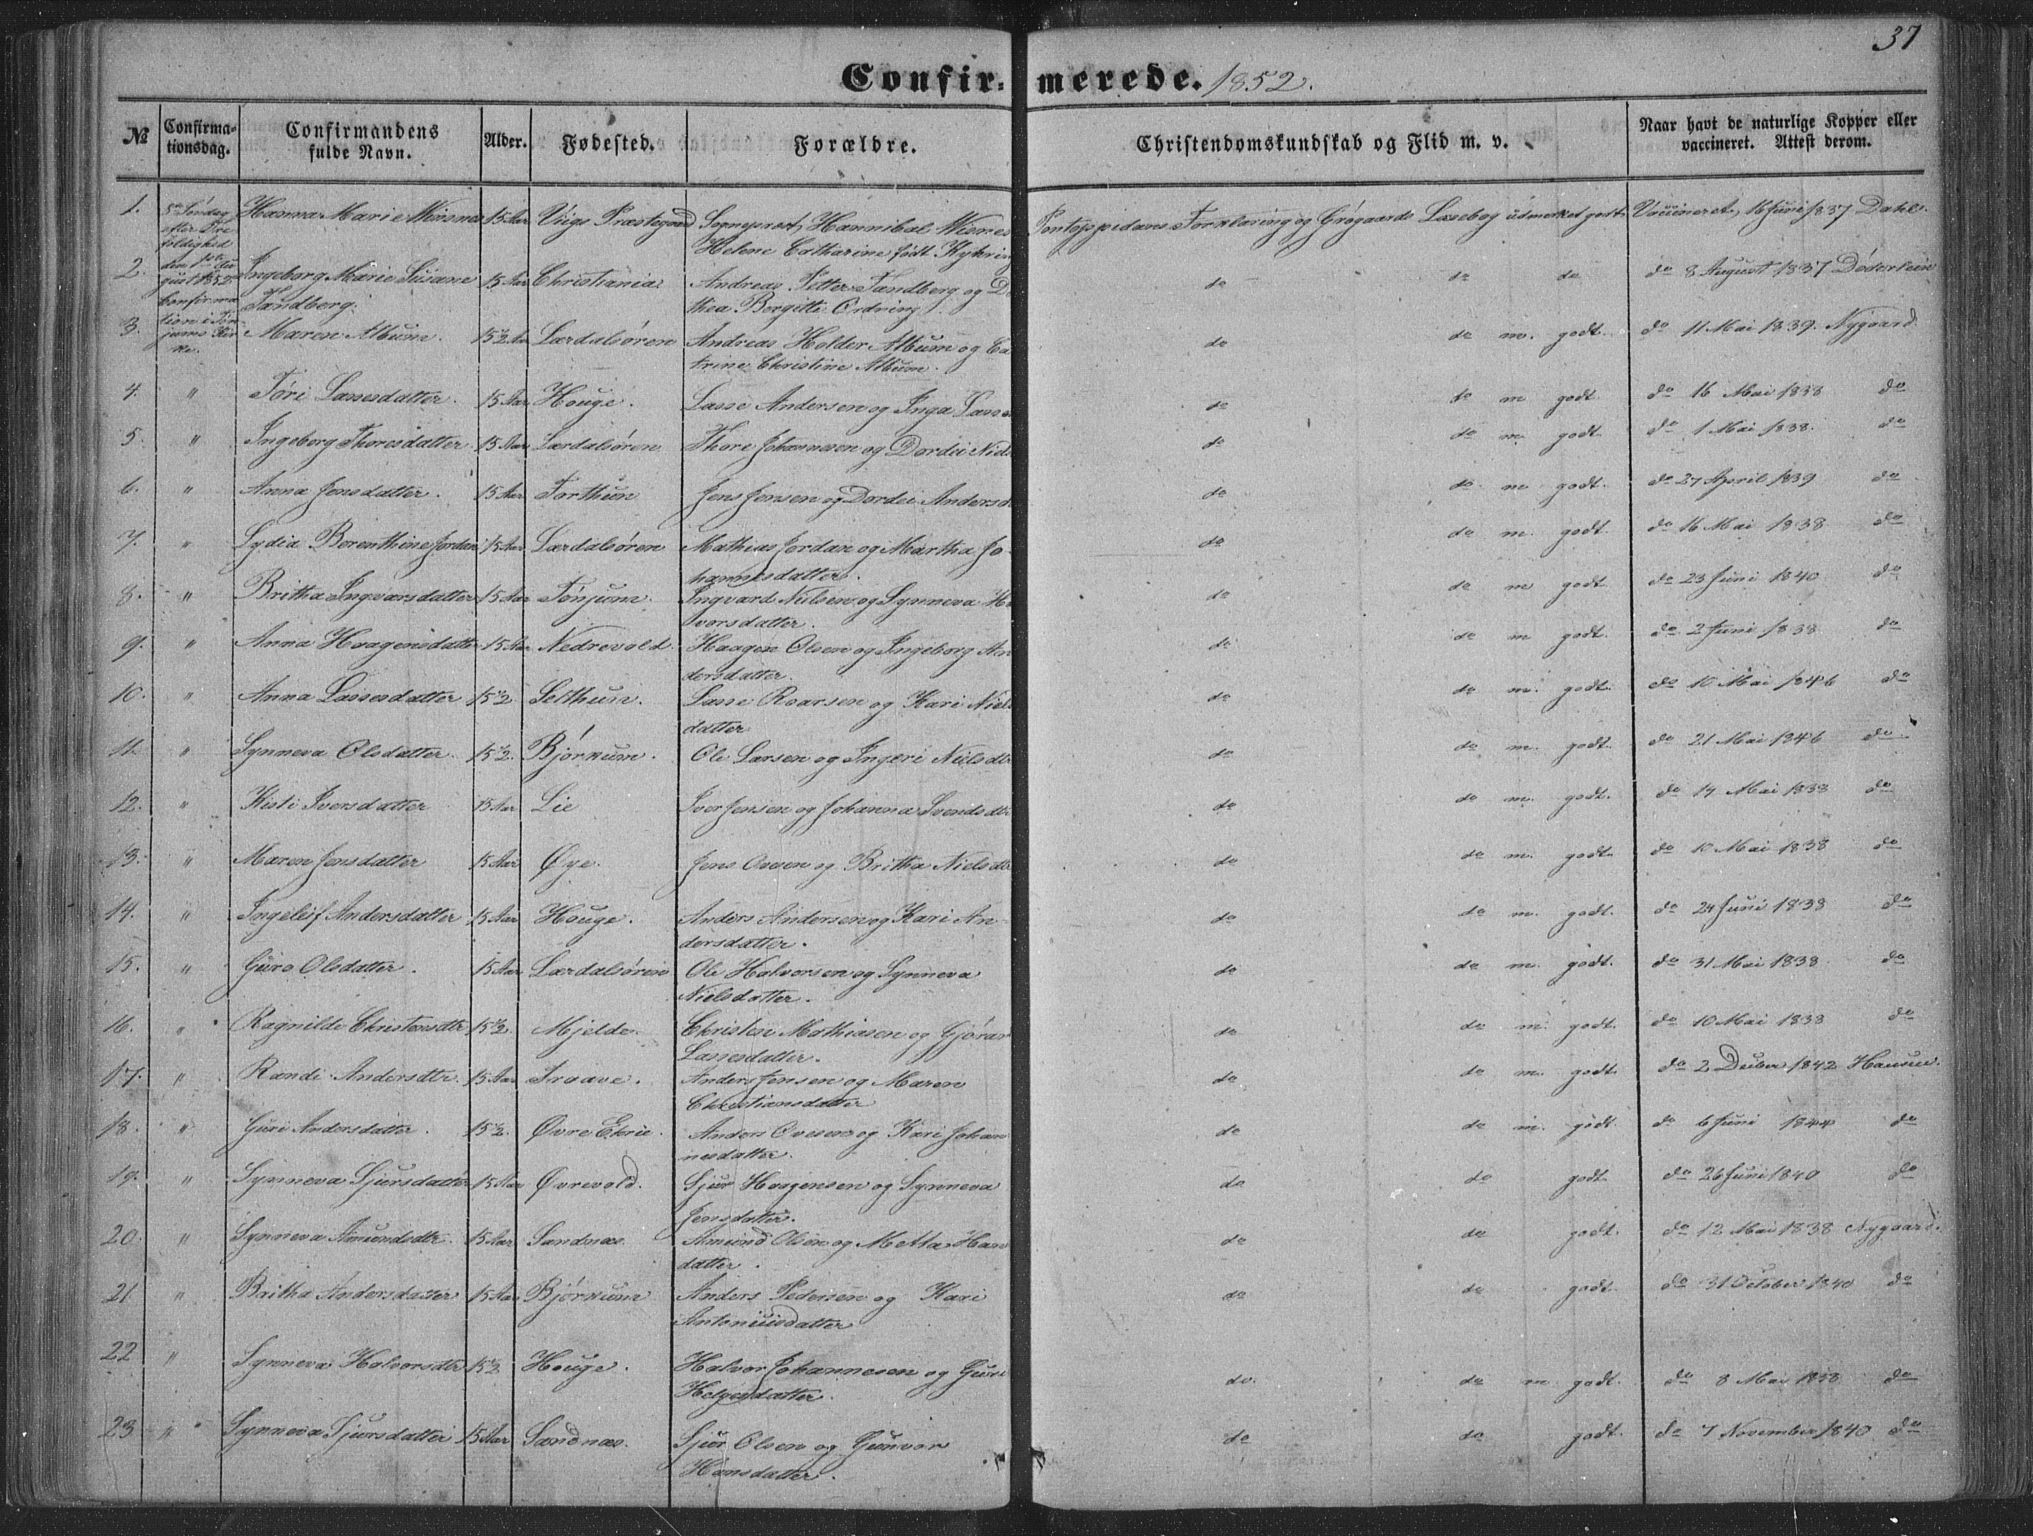 37
Confir- merede. 1852.
№ Confirma- tionsdag. Confirmandens fulde Navn. Alder. Fødested. Forældre. Christendomskundskab og Flid m. v. Naar havt de naturlige Kopper eller vaccineret. Attest derom.
1. 5te Søndag Hanna Marie 15 Aar Viigs Præstegaard Sogneprest Hannibal Pontoppidans Forklaring og Grøgaards Læsebog udmerket godt Vaccineret 16 Juni 1837 Dahl.
efter Tre-
foldighed Helene Catharine født
2. den 1ste Au- Ingeborg Marie Susane 15 Aar Christiania Andreas Petter Sandberg og Do do do do do 8 August 1837 Døderlein
gust 1852
Confirma Sandberg. thea Bergitte Ordning
tion i Tøn
3. jums Kir Maren Album. 15½ Aar Lærdalsøren Andreas Holder Album og Ca do do m. godt. do 11 Mai 1839. Nygaard
ke. trine Christine Album.
4. " Tøri Lassesdatter. 15 Aar Houge. Lasse Andersen og Inga Lasse do do m godt do 16 Mai 1838 do
5. " Ingeborg Thoresdatter 15 Aar Lærdalsøren Thore Johannesen og Dordei Niels do do m. godt. do 1 Mai 1838. do
6. " Anna Jensdatter. 15 Aar Torthun Jens Jensen og Dordei Andersd do do m godt. do 27 April 1839 do
7. " Lydia Berenthine Jordan 15 Aar Lærdalsøren Mathias Jordan og Martha Jo- do do m. godt. do 16 Mai 1838 do
hannesdatter.
8. " Britha Ingvarsdatter 15 Aar Tønjum. Ingvard Nielsen og Synneva H do do m godt. do 23 Juni 1840 do
vorsdatter.
9. " Anna Haagensdatter 15 Aar Nedrevold. Haagen Olsen og Ingeborg An do do m godt. do 2 Juni 1838 do
dersdatter.
10. " Anna Lassesdatter 15½ Selthun. Lasse Roarsen og Kari Niels do do m. godt. do 10 Mai 1846 do
datter
11. " Synneva Olsdatter. 15½. Bjørkum. Ole Larsen og Ingeri Nielsdtr do do m. godt. do 21 Mai 1846 do
12. " Kisti Iversdatter 15 Aar Lie Iver Jensen og Johanna Svendsdtr do do m. godt. do 14 Mai 1838 do
13. " Maren Jensdatter 15 Aar Øye. Jens Ovesen og Britha Nielsdtr do do m. godt. do 10 Mai 1838 do
14. " Ingelèif Andersdatter 15 Aar Houge. Anders Andersen og Kari An- do do m. godt. do 24 Juni 1838 do
dersdatter.
15. " Guro Olsdatter. 15 Aar Lærdalsøren Ole Halvorsen og Synneva do do m. godt. do 31 Mai 1838 do
Nielsdatter.
16. " Ragnilde Christensdtr 15½. Mjelde. Christen Mathiasen og Gjøran do do m. godt. do 10 Mai 1838 do
Lassesdatter.
17. " Randi Andersdtr. 15 Aar Traave. Anders Jensen og Maren do do m. godt. do 2 Dcber 1842
Christiansdatter
18. " Guri Andersdatter. 15½. Øvre Ekrie. Anders Ovesen og Kari Johan do do m. godt do 6 Juni 1844 do
nesdatter.
19. " Synneva Sjursdatter 15 Aar Øvrevold. Sjur Haagensen og Synneva do do godt. do 26 Juni 1840 do
Jensdatter.
20. " Synneva Amundsdtr. 15 Aar Sandnæs. Amund Olsen og Metta Hans do do godt. do 12 Mai 1838 Nygaard.
datter.
21 " Britha Andersdatter 15 Aar Bjørkum Anders Pedersen og Kari do do godt. do 31 October 1840 do
Antoniusdatter
22 " Synneva Halvorsdtr 15½ Houge. Halvor Johannesen og Guri do. do m godt. do 8 Mai 1838 do
Helgesdatter.
23 " Synneva Sjursdatter 15 Aar Sandnæs. Sjur Olsen og Gunvor do do godt. do 7 November 1840 do
Hansdatter.